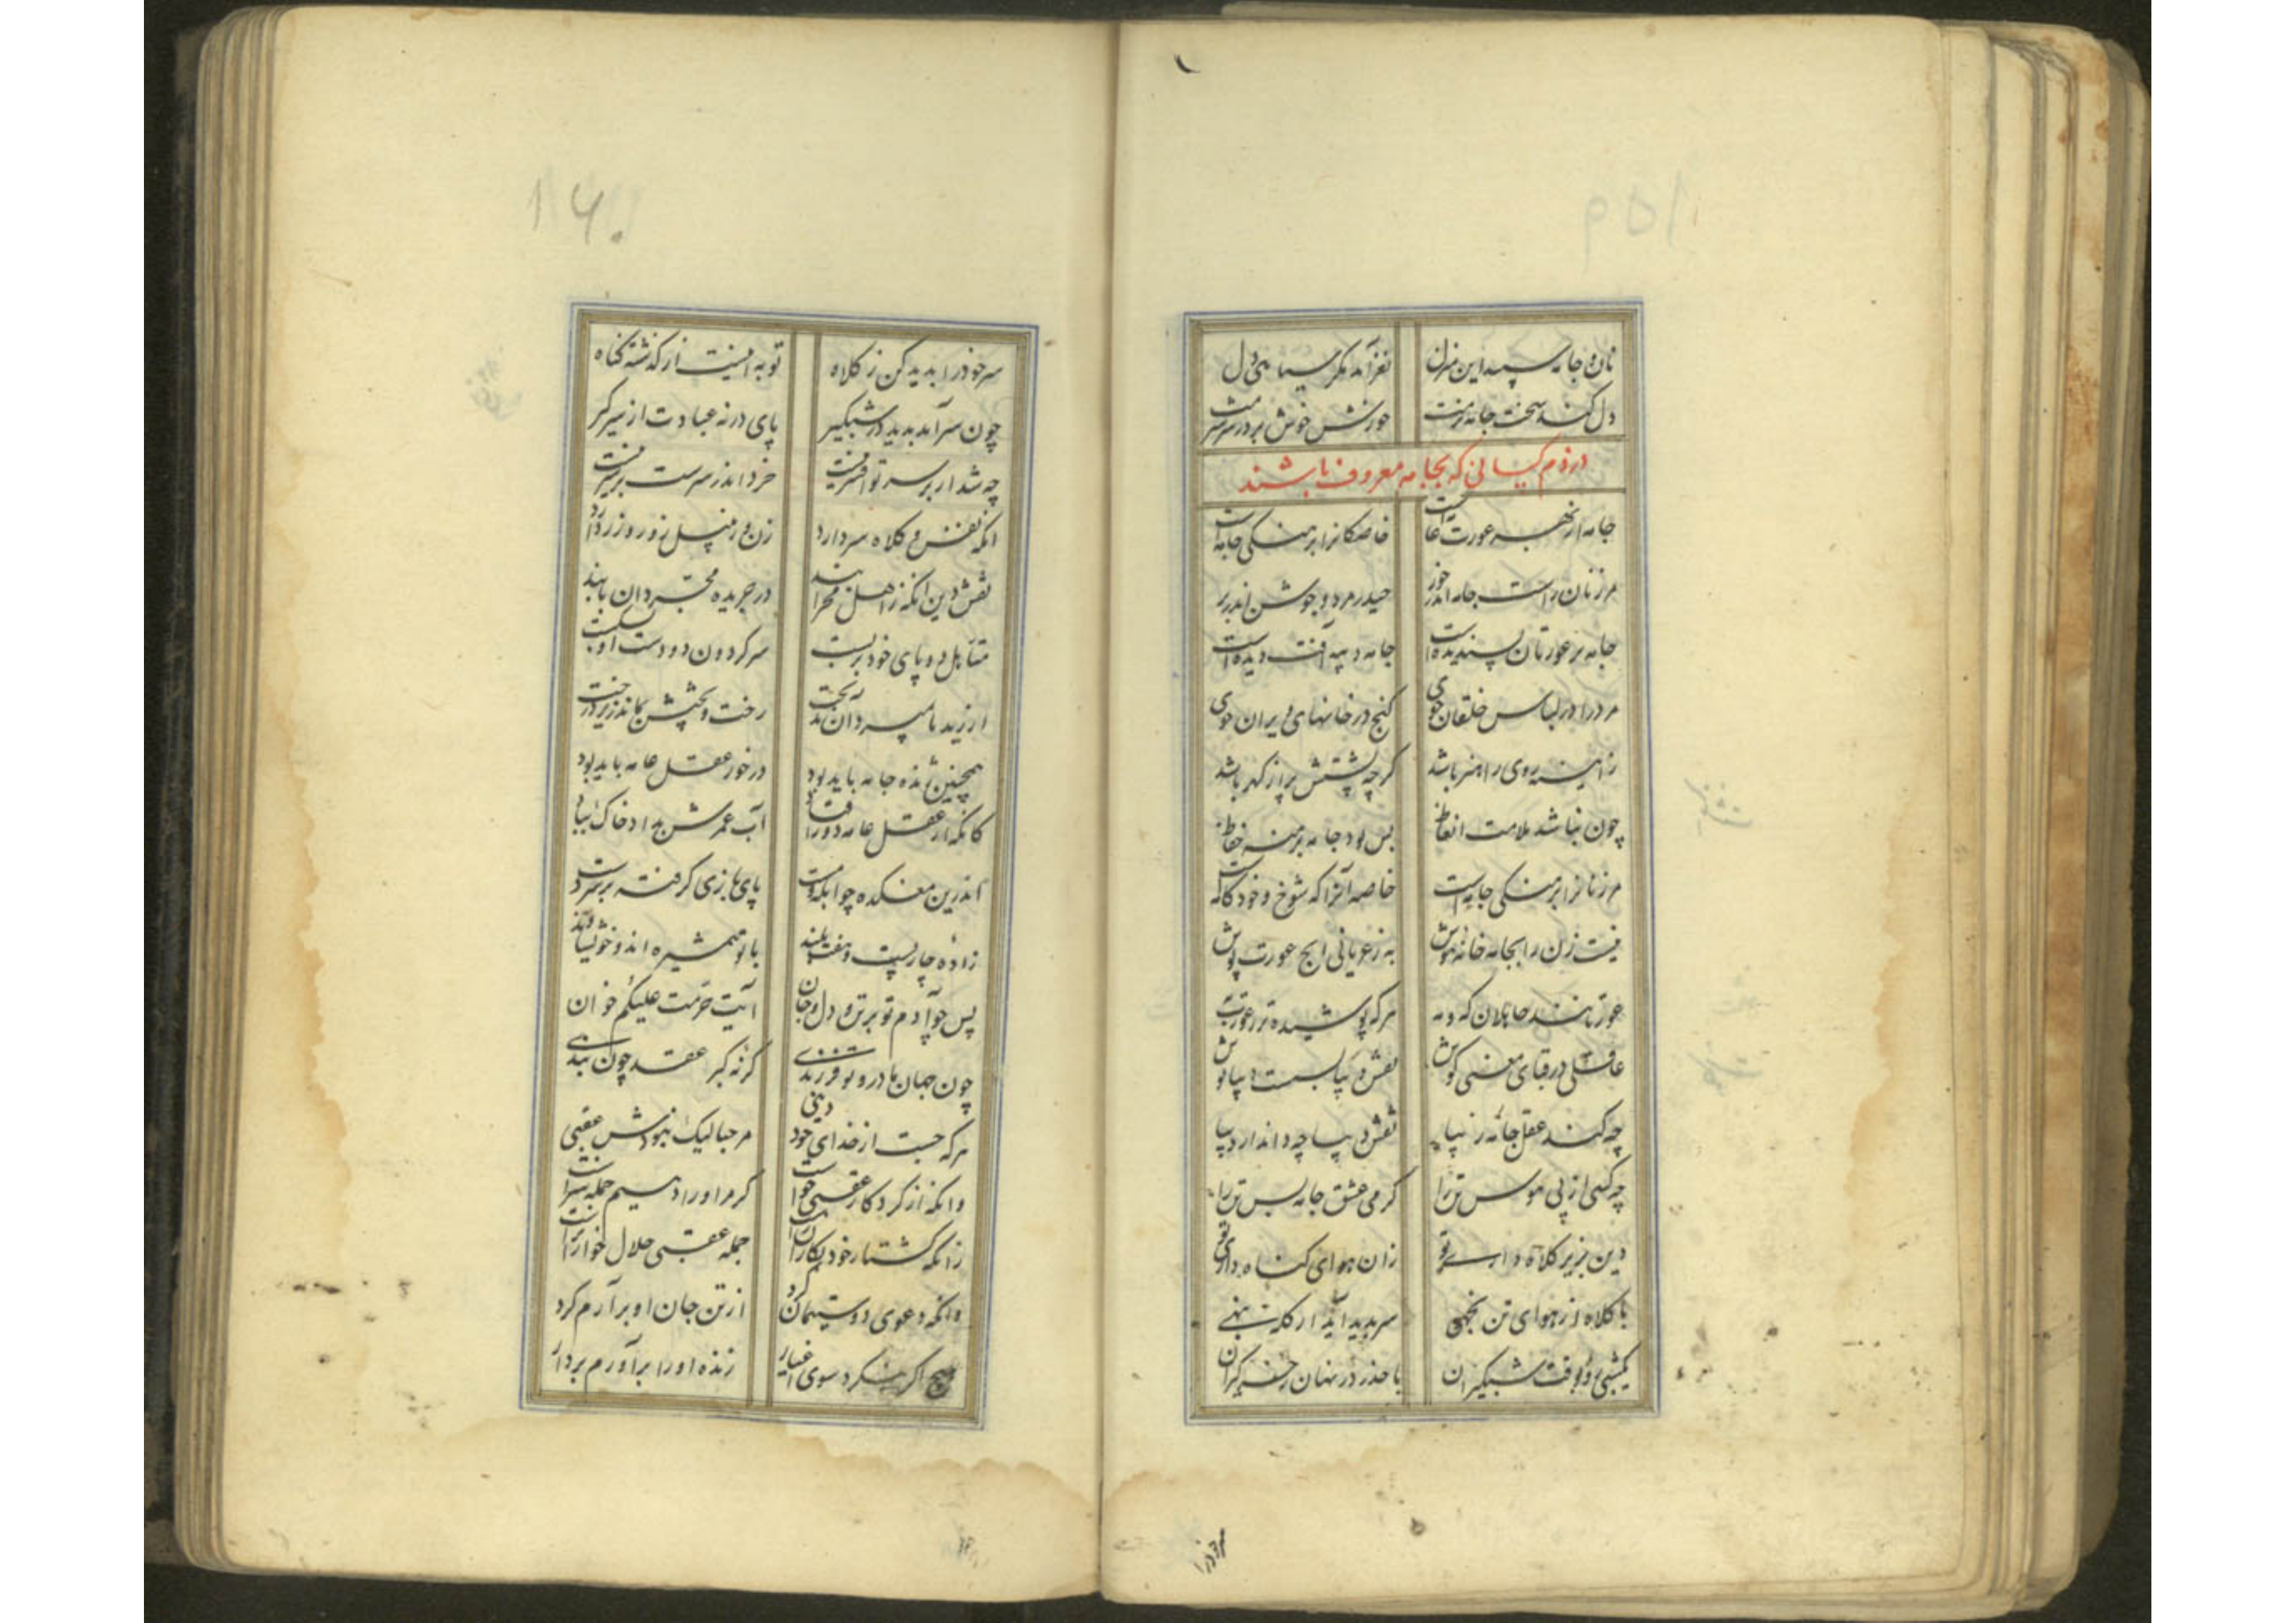 نان و جامه سپید این منزل نغز آمد مگر سیاهی دل
دل کند سخت جامه نرمت خورش خوش برد ز سر شرمت
در ذم کسانی که بجامه معروف باشند
جامه از بهر عورت عامه است خاصگانرا برهنگی جامه است
مر زنان راست جامه اندر خور حیدر مرد و جوشن اندر بر
جامه بر عورتان پسندیده است جامه دیبه آفت دیده است
مرد را در لباس خلقان جوی گنج در خانهای ویران جوی
ز آینه روی را هنر باشد گرچه پشتش پر از گهر باشد
چون نباشد ملامت اتعاظ بس بود جامه برهنه حفاظ
مر زنانرا برهنگی جامه است خاصه آنرا که شوخ و خود کامه است
نیست زن را بجامه خانه هوش به ز عریانی ایچ عورت پوش
عورتانند جاهلان که و مه هر که پوشیده تر ز عورت به
عاشقی در قبای معنی کوش نفش و پیاست دیبا پوش
چه کند عقل جامه زیبا نقش دیبا چه داند از دیبا
چه کنی از پی هوس تن را گرمی عشق جامه بس تن را
دین بزیر کلاه داری تو زان هوای گناه داری تو
با کلاه از هوای تن نجهی سر پدید آید ار کله بنهی
گیسی و وقت شبگیران با حذر در نهان ز خر گیران
سر خود را بدید کن ز کلاه توبه اینست از گذشته گناه
چون سر آمد بدید در شبگیر پای در نه عبادت از سر گیر
چه شد ار بر سر تو افسر نیست خرد اندر سرست بر سر نیست
انکه نفش و کلاه سر دارد زن و زنبیل و زور و زر دارد
نقش دین انکه ز اهل محرابند در جریده مجردان یابند
متاهل دو پای خود بربست سر گردون دو دست او بشکست
ار زید نا میرد آن بد بخت رخت و بختش بماند زیر درخت
همچنین شده جامه باید بود در خور عقل عامه باید بود
کانکه از عقل عامه دور افتاد آب عمرش بداد خاک بباد
اندرین مفسکده چو ابله و مست پای بازی گرفته بر سر دست
زاده چار پست و هفت بلند با تو همشیره اند و خویشاوند
پس حوا دم تو بر تن و دل و جان آیت حرمت علیکم خوان
چون جهان مادر و تو فرزندی گرنه گبر عقد چون بندی
هر که جست از خدای خود دینی مرحبا لیک نبودش عقبی
وانکه از کردگار عقبی خواست گر مر او را دهیم جمله سزاست
زانکه کشتار خود بکار است جمله عقبی حلال خوار است
وانکه دعوی دوستیمان کرد از تن جان او بر آرم گرد
هیچ اگر بنگرد سوی اغیار زنده او را برآورم بر دار
سر خود را